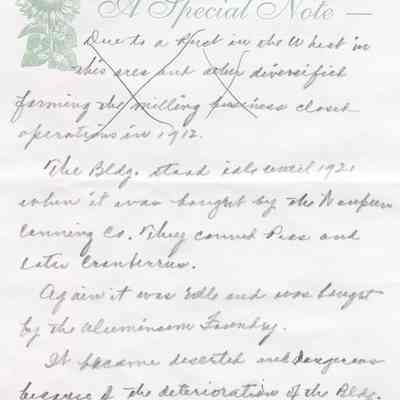 A Special Note
Due to a Rust in the Wheat in
this area and other diversified
farming the milling business closed
operations in 1912.
The Bldg. stood idle until 1921
when it was bought by the Waupun
Canning Co. They canned Peas and
later Cranberries.
Again it was Idle and was bought
by the Aluminum Foundry.
It became deserted and dangerous
because of the deterioration of the Bldg.